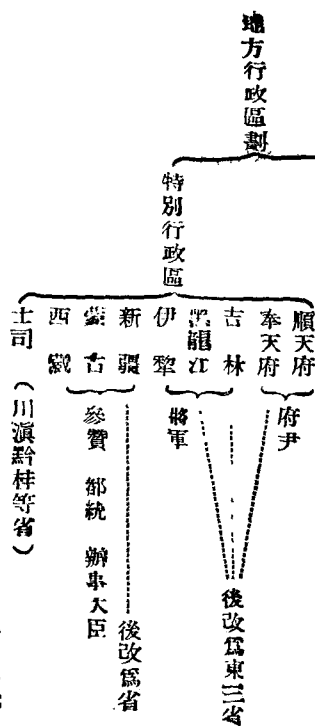 地方行政區劃
特別行政區
順天府
奉天府
府尹
吉林
黑龍江
伊犂
將軍
後改爲東三省
新疆
後改爲省
蒙古
西藏
參贊 都統 辦事大臣
土司(川滇黔桂等省)